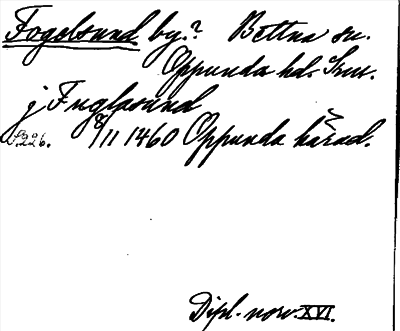 Fogelsund by.? Bettna sn.
Oppunda hd. Srm.
j Fuglasund
s. 226. 9/11 1460 Oppunda härad.
Dipl. norv. XVI.